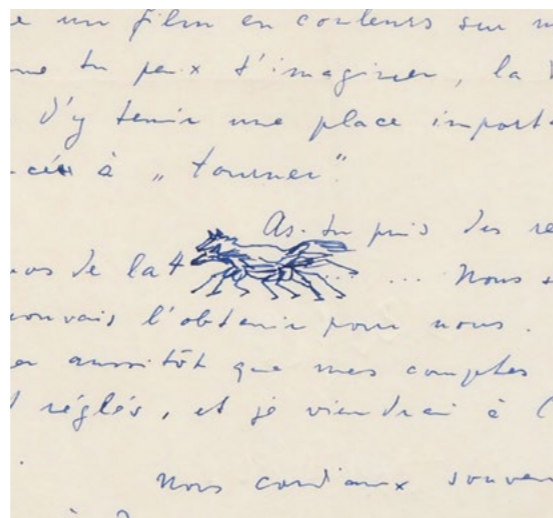 e un film en couleurs sur m
me tu peux t'imaginer, la
d'y tenir une place import
à „tourner".
As-tu pris des re
os de la 4 ... ... Nous s
ouvais l'obtenir pour nous.
er aussitôt que mes comptes
t réglés, et je viendrai à C
Nous cordiaux souven